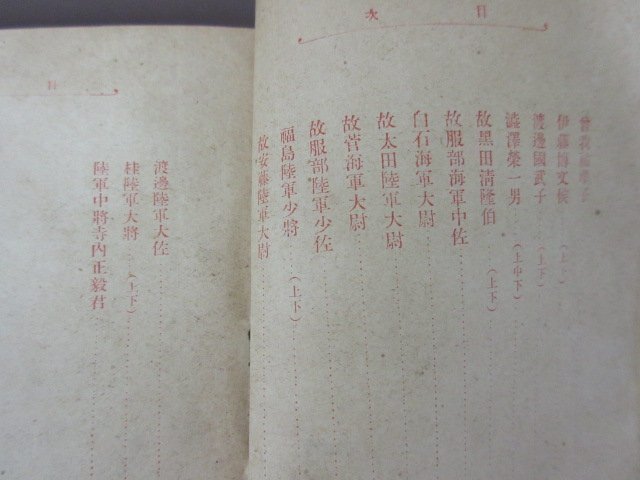 目次
曾我祐準子
伊藤博文侯（上下）
渡邊國武子（上下）
澁澤榮一男（上中下）
故黑田清隆伯（上下）
故服部海軍中佐
白石海軍大尉
故太田陸軍大尉
故菅海軍大尉
故服部陸軍少佐
福島陸軍少將（上下）
故安藤陸軍大尉
目
渡邊陸軍大佐
桂陸軍大將（上下）
陸軍中將寺內正毅君